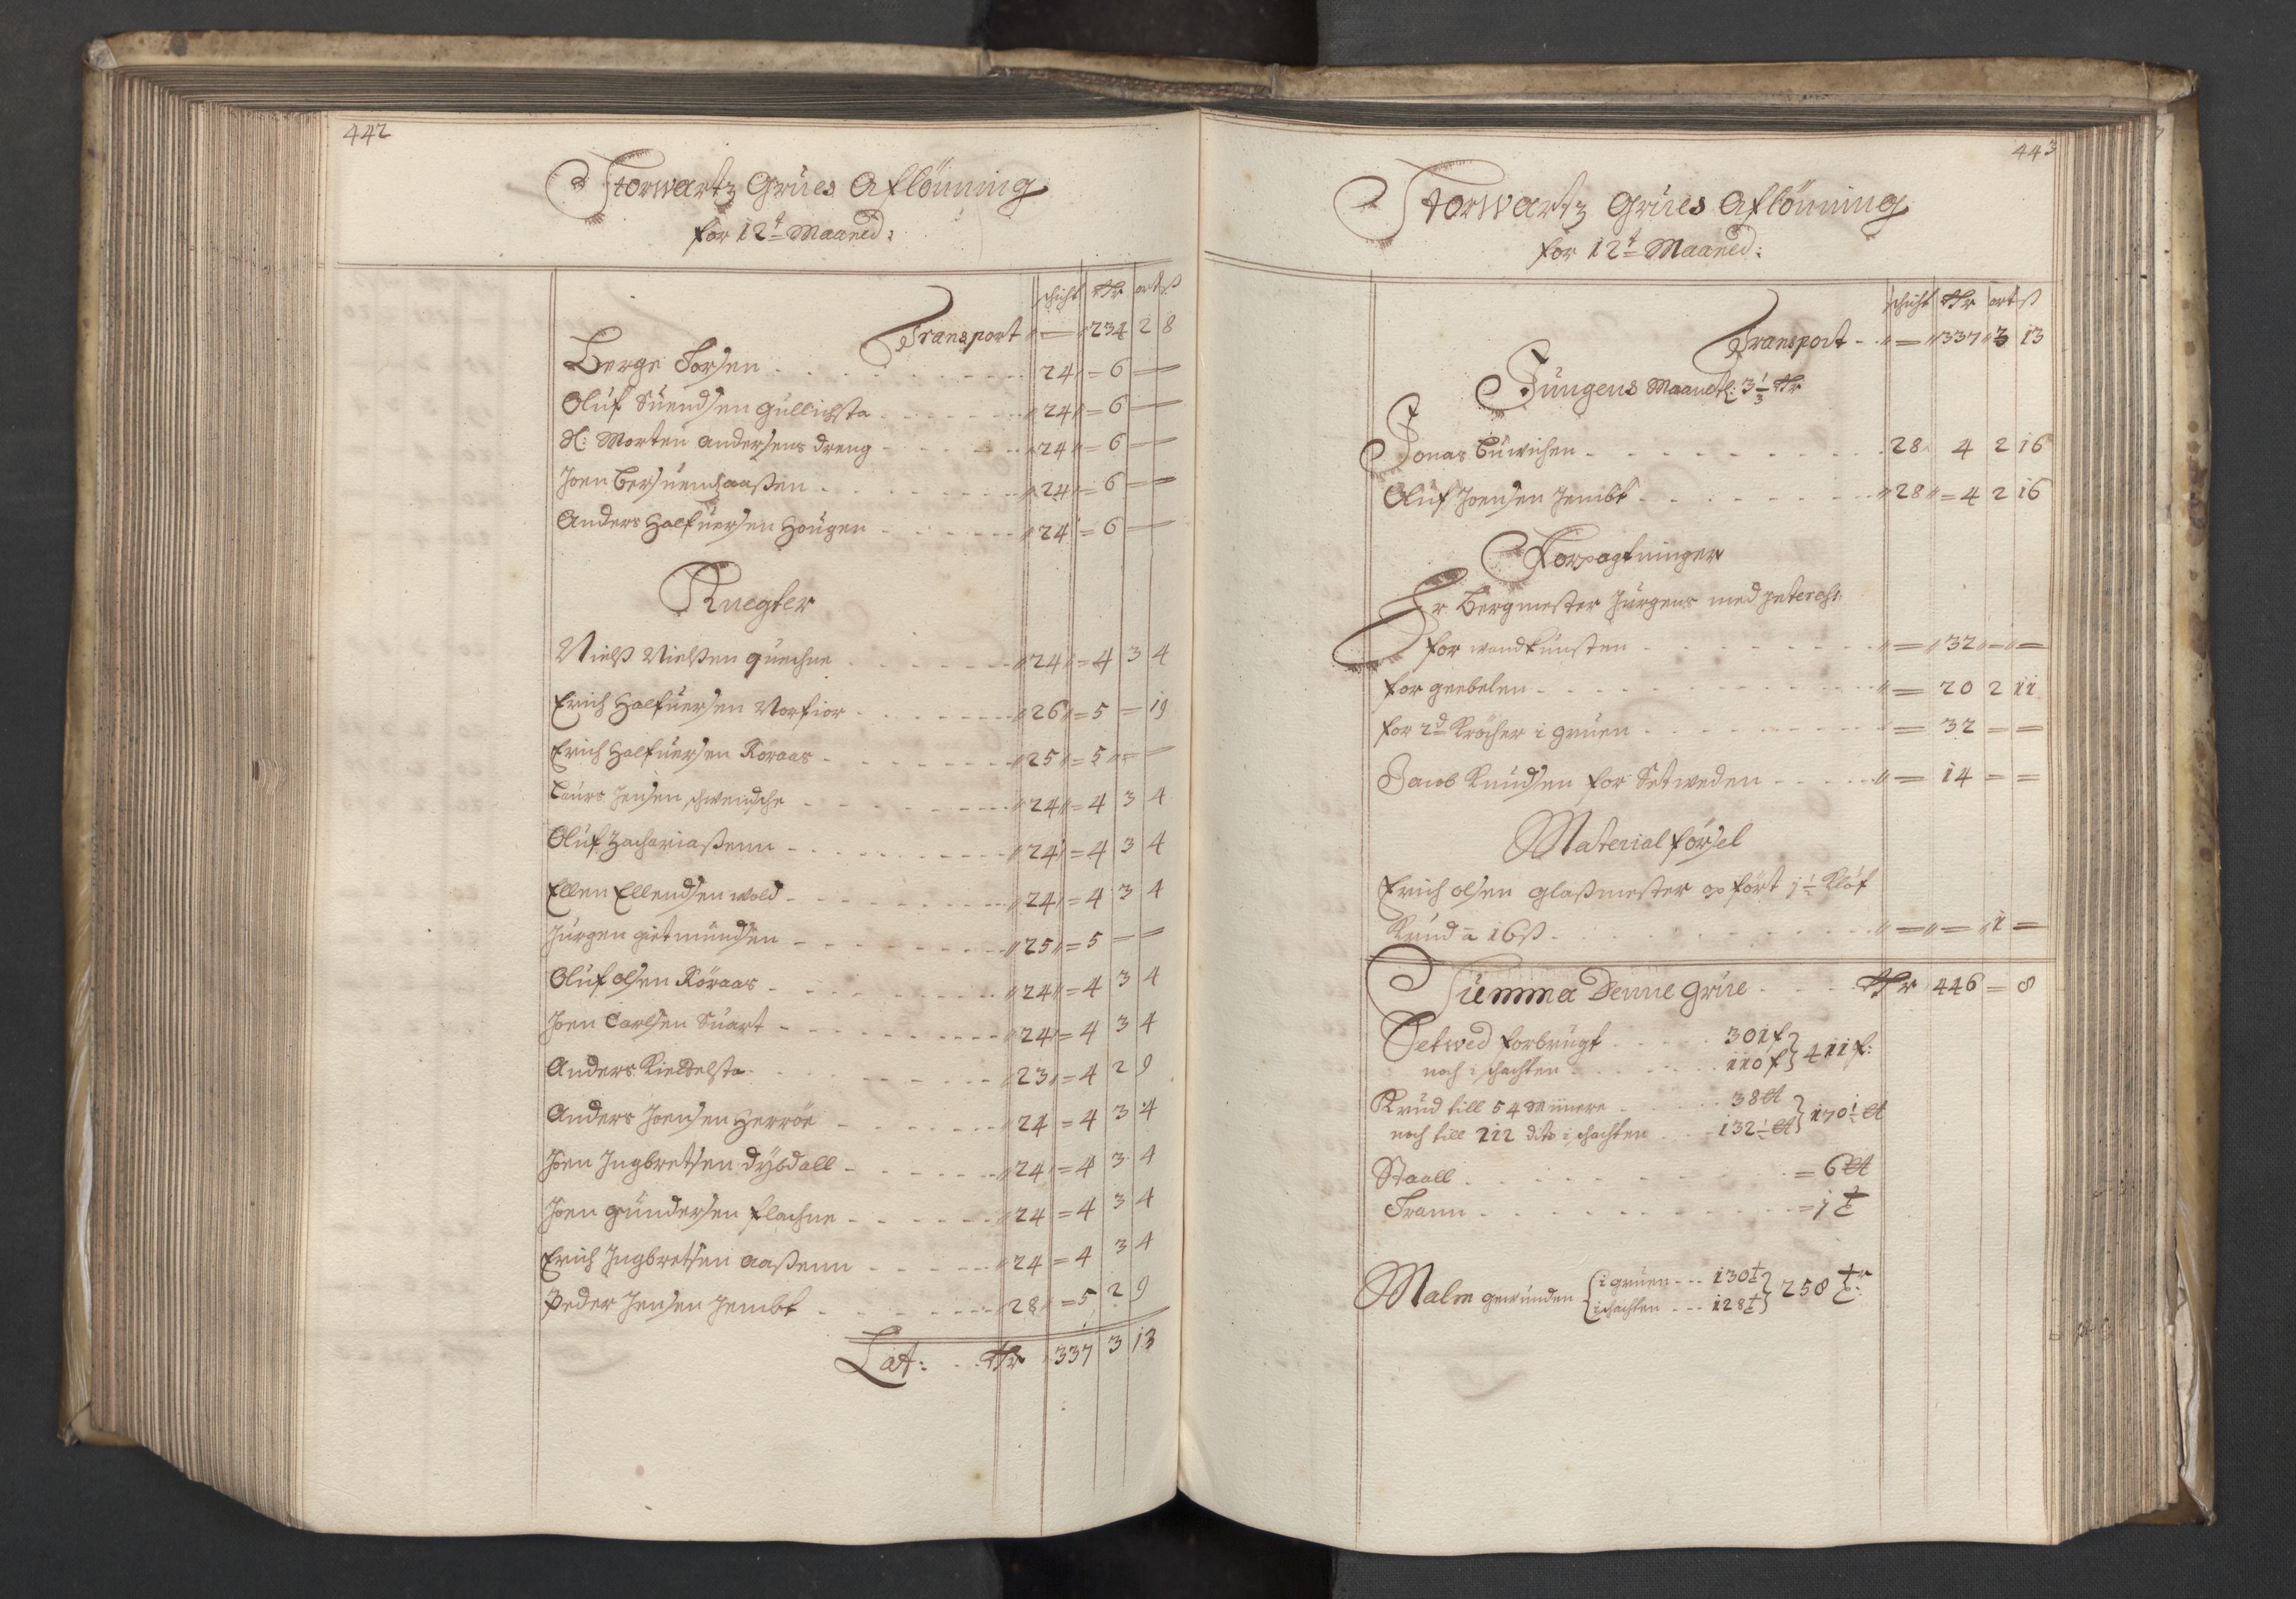 442
Storwartz Grües Aflönning
for 12t Maaned:
schicht Rdr ort ß
Transport 〃 = 〃 234 2 8
Berge Torsen 24 = 6 —
Oluf Suendsen Gullichsta 24 = 6 —
H: Morten Andersens dreng 24 = 6 —
Joen 24 = 6 —
Anders Halfuersen Hougen 24 = 6 —
Knegter
Nielß Nielßen quechne 24 = 4 3 4
Erich Halfuersen Norfior 26 = 5 — 19
Erich Halfuersen Röraas 25 = 5 = —
Laurs Jensen schwendsche 24 = 4 3 4
Oluf Zachariaßenn 24 = 4 3 4
Ellen Ellendsen wold 24 = 4 3 4
Jürgen gietmundsen 25 = 5 — —
Oluf olsen Röraas 24 = 4 3 4
Joen Carlsen Suart 24 = 4 3 4
Anders Kieldelsta 23 = 4 2 9
Anders Joensen Herröe 24 = 4 3 4
Joen Ingbretsen dybdall 24 = 4 3 4
Joen gundersen flachne 24 = 4 3 4
Erich Ingbretsen aaßenn 24 = 4 3 4
Peder Jensen Jembt 28 = 5 2 9
Lat: Rdr 337 3 13
443
Storwartz Grües Aflönning
for 12t Maaned:
schicht Rdr ort ß
Transport 〃 = 〃 337 〃 3 13
Jüngens Maanetl: 3 1/3 Rdr
Jonas Büwichen 28 4 2 16
Oluf Joensen Jembt 28 = 4 2 16
Forpagtninger
Hr Bergmester Jürgens med
for wandkunsten 〃 = 〃 32 〃 = 〃 =
for geebelen 〃 = 20 2 11
for 2d Kröcher i gruen = 32 = =
Jacob Knudsen for Setweden 〃 = 14 = =
Material försel
Erich olsen glaßmester opfört 1 1/2 Kloft
Krud a 16 ß 〃 = 〃 = 〃 1 =
Summa Denne Grüe Rdr 446 = 8
Setwed forbrugt 301 f
noch i schachten 110 f } 411 f:
Krud till 54 Miinere 38 ℔
noch till 212 dito i schachten 132 1/2 ℔ } 170 1/2 ℔
Staall = 6 ℔
Trann = 1 t
Malm gewunden { i gruen 130 t
i schachten 128 t } 258 tr: